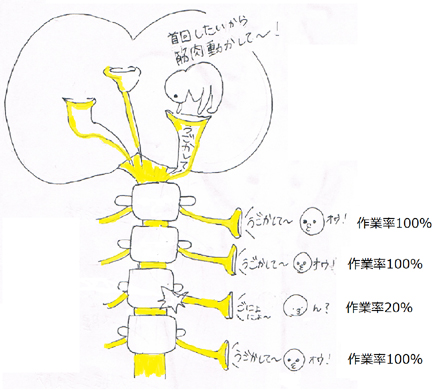 首回したいから
筋肉動かして～!
うごかして
うごかして～ オウ! 作業率100%
うごかして～ オウ! 作業率100%
ごにょ
ごにょ～ ん? 作業率20%
うごかして～ オウ! 作業率100%